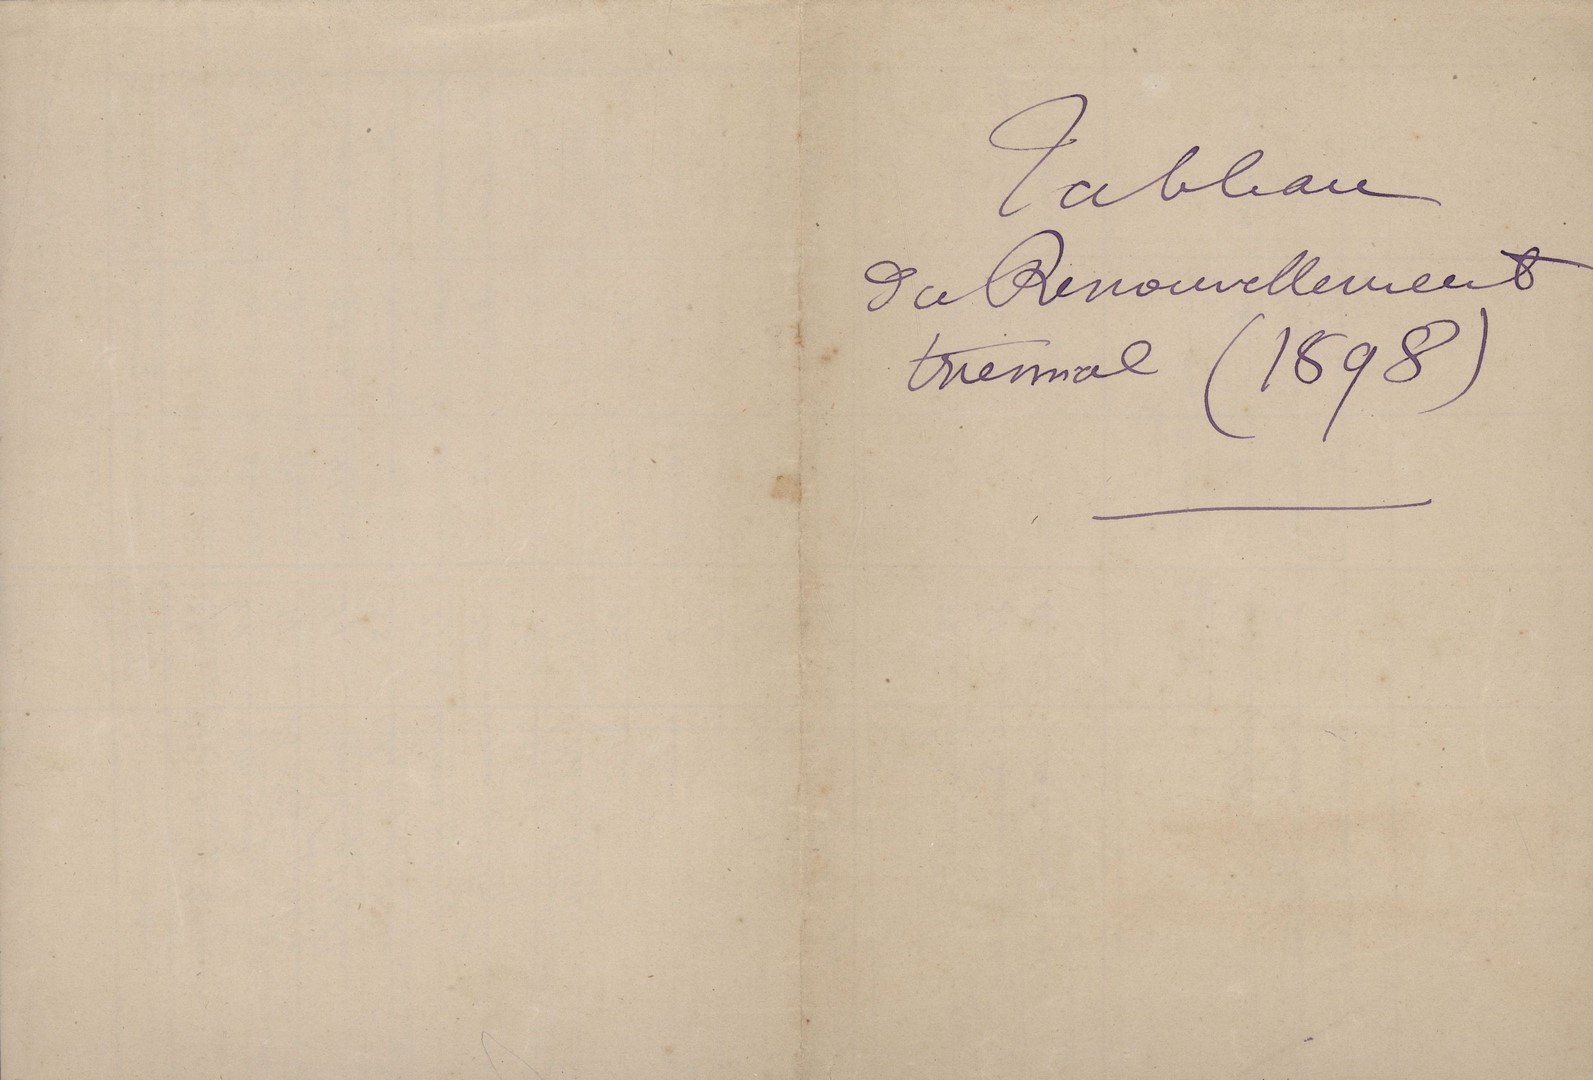 Tableau
du Renouvellement
triennal (1898)